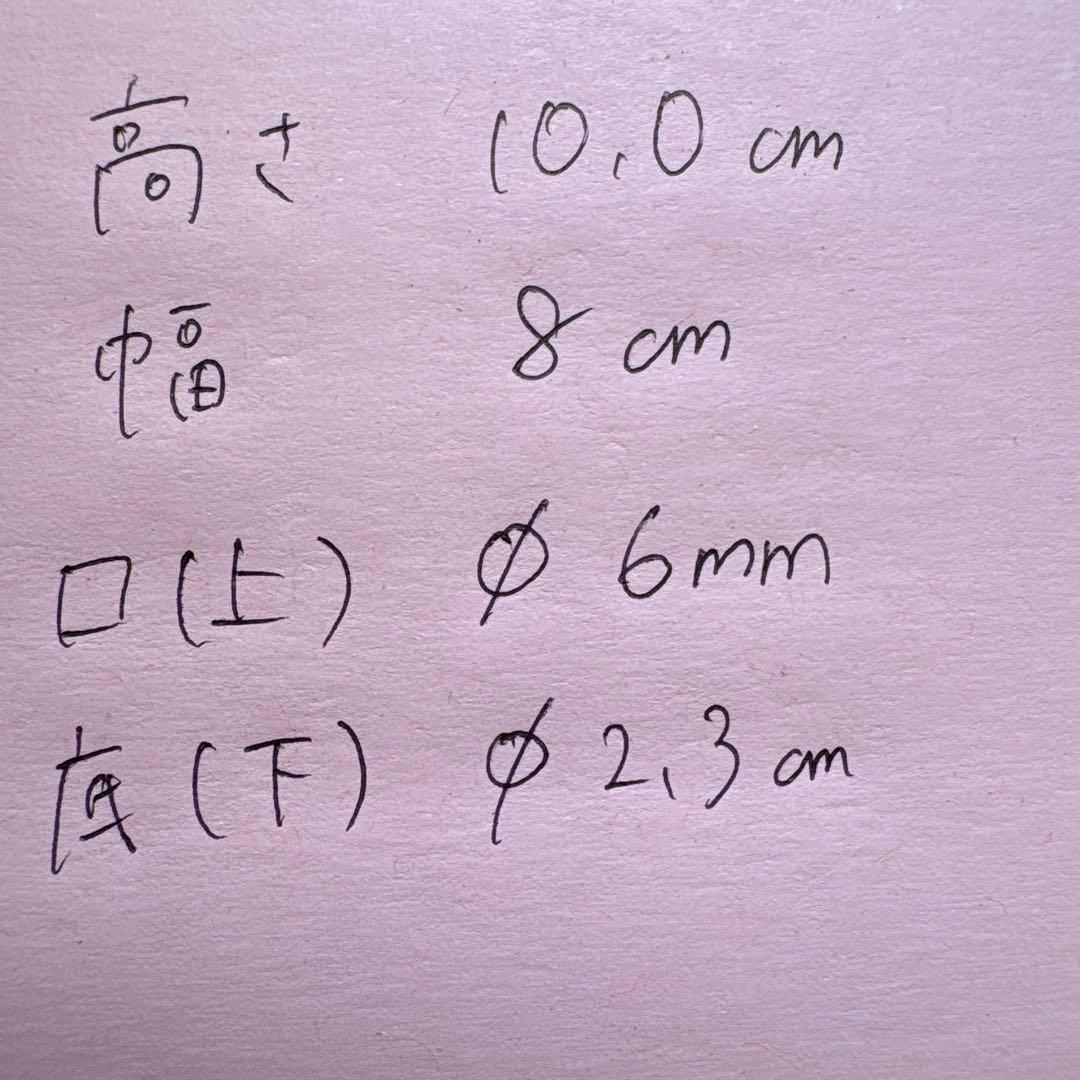 高さ 10.0 cm
幅 8 cm
口(上) φ 6mm
底(下) φ 2.3 cm